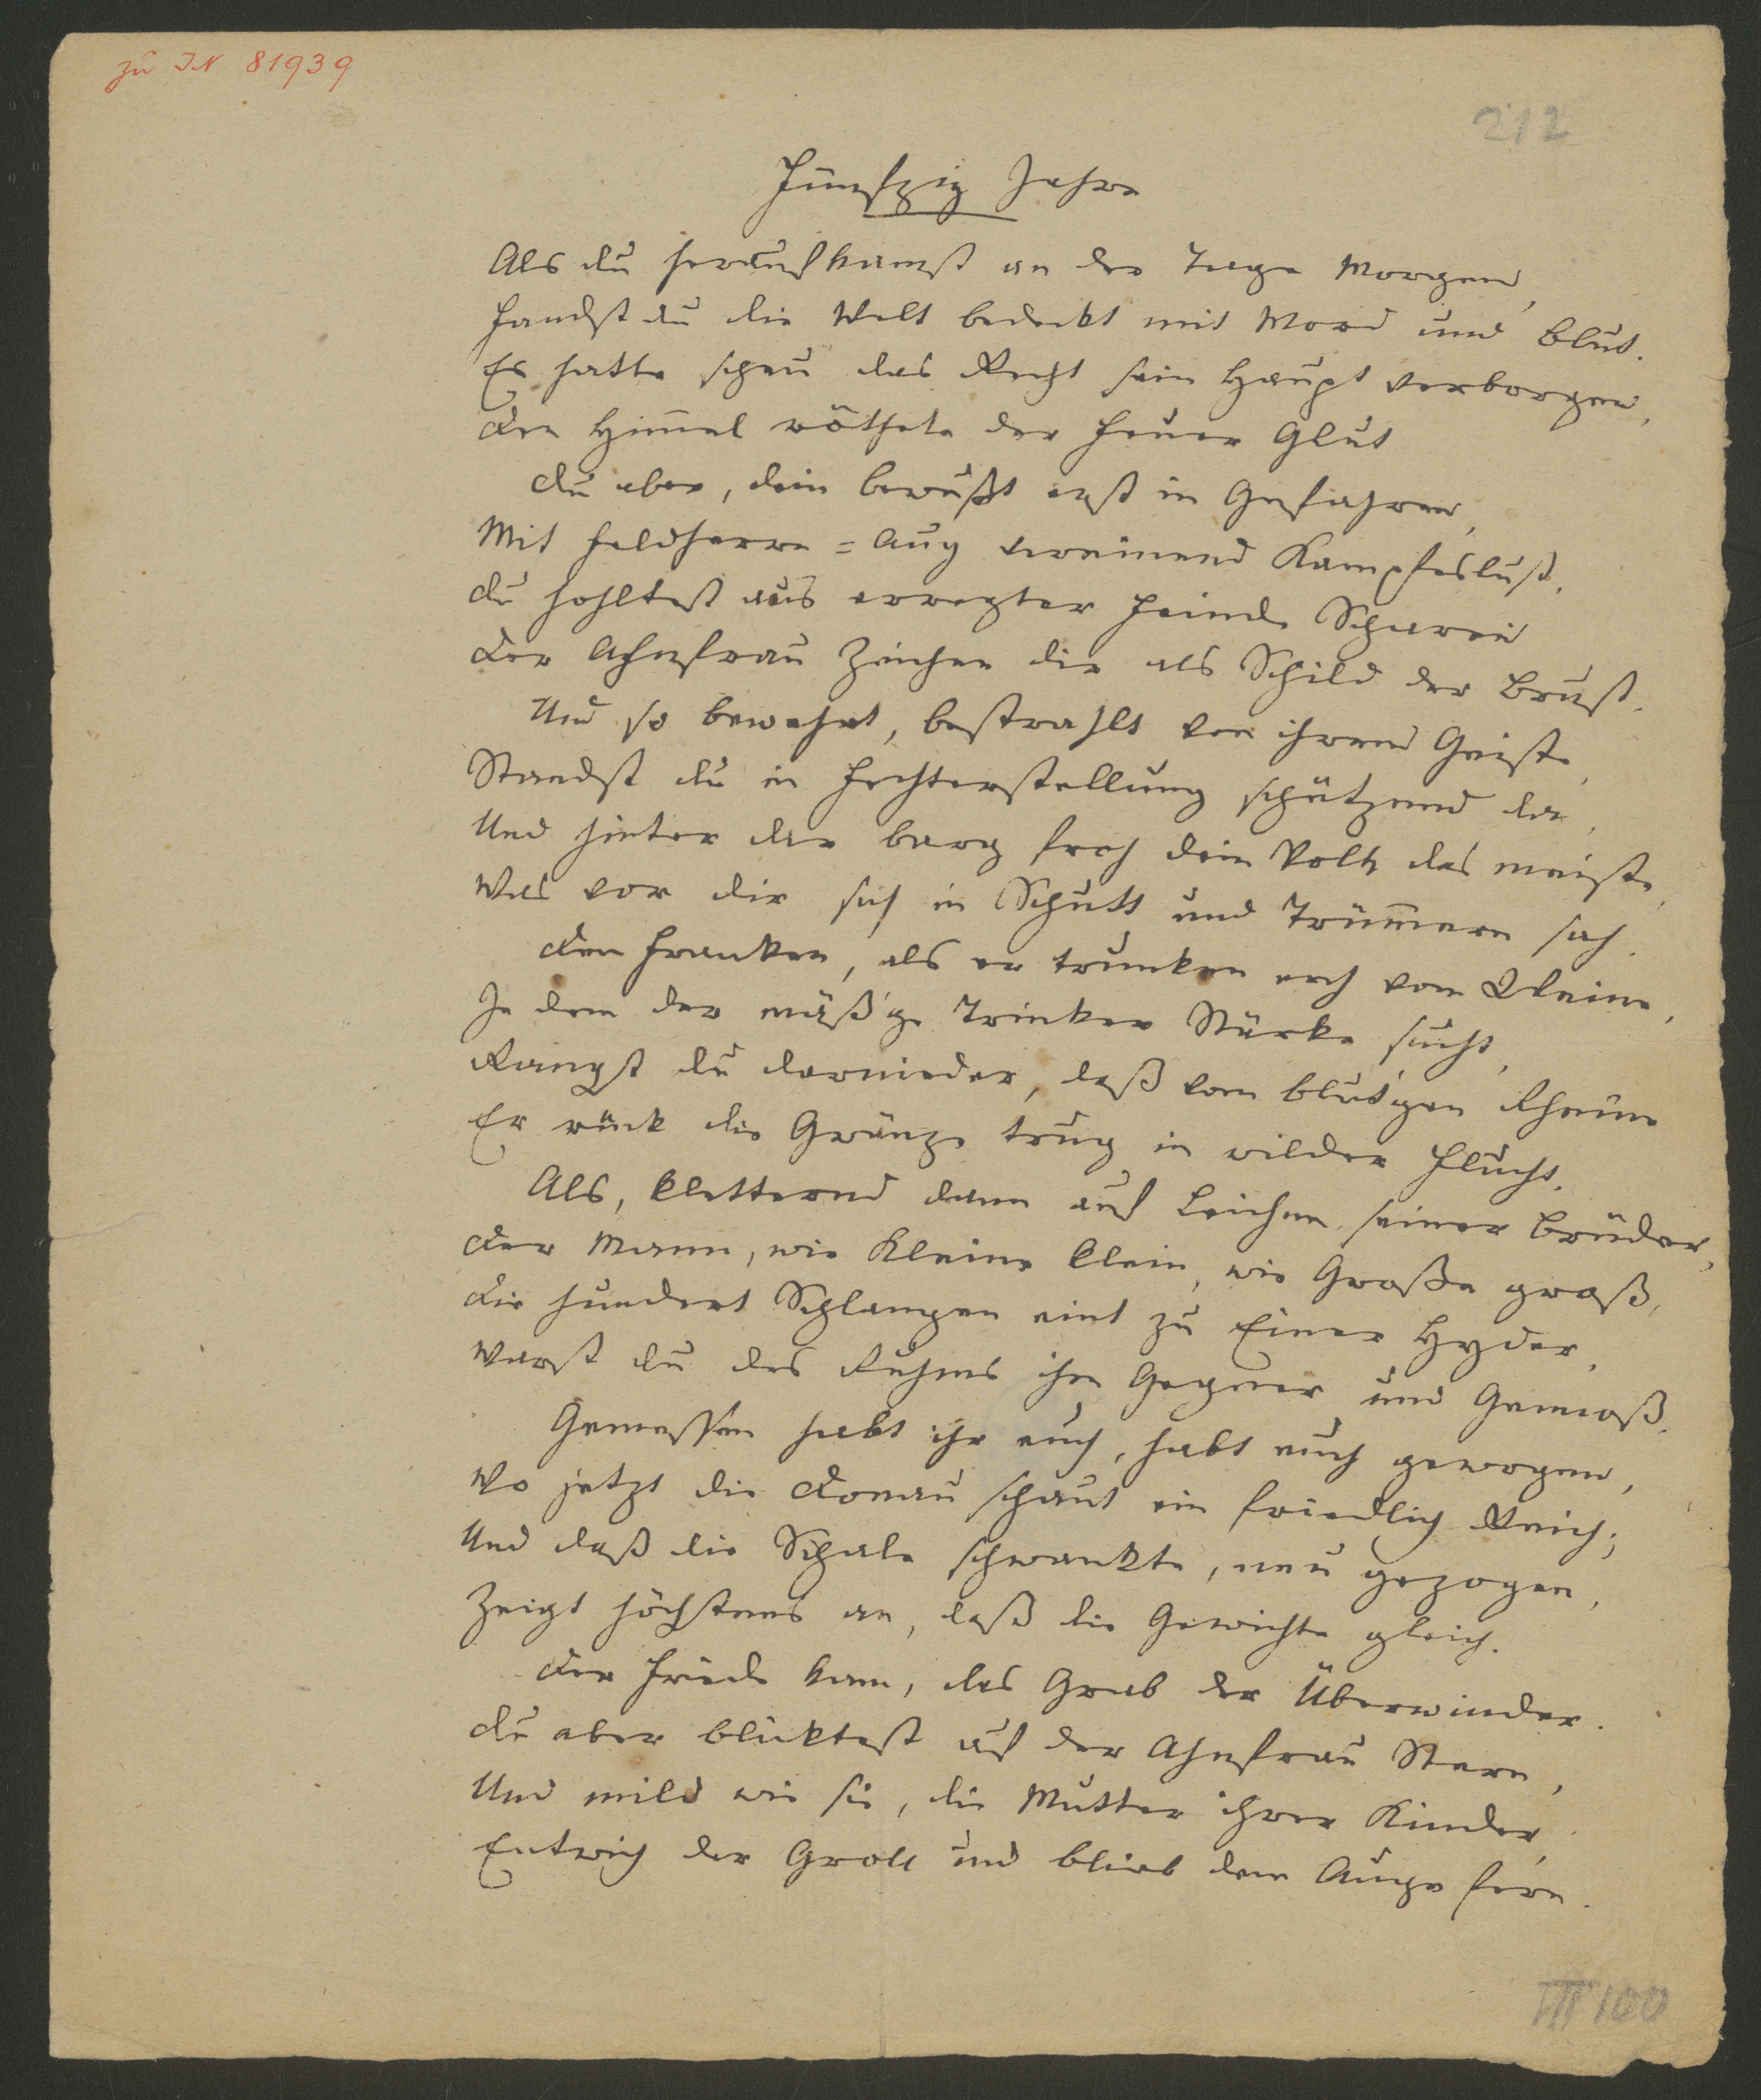 zu IN 81939
212
Fünfzig Jahre
Als du heraufkamst an der Tage Morgen,
Fandst du die Welt bedeckt mit Mord und Blut.
Es hatte scheu das Recht sein Haupt verborgen,
Den Himmel röthete der Feuer Glut
Du aber, dein bewußt erst in Gefahren,
Mit Feldherrn=Aug verneinend Kampfeslust,
Du hohltest aus erregter Feinde Scharen
Der Ahnfrau Zeichen dir als Schild der Brust.
Und so bewehrt, bestrahlt von ihrem Geiste,
Standst du in Fechterstellung schützend da,
Und hinter dir barg froh dein Volk das meiste,
Was vor dir sich in Schutt und Trümmern sah.
Den Franken, als er trunken noch vom Weine,
In dem der mäß'ge Trinker Stärke sucht,
Rangst du darnieder, daß vom blut'gen Rheine
Er rück die Gränze trug in wilder Flucht.
Als, kletternd dann auf Leichen seiner Brüder,
Der Mann, wie Kleine klein, wie Große groß,
Die hundert Schlangen eint zu Einer Hyder,
Warst du des Ruhms ihm Gegner und Genoß.
Gemessen habt ihr euch, habt euch gewogen,
Wo jetzt die Donau schaut ein friedlich Reich;
Und daß die Schale schwankte, neu gezogen,
Zeigt höchstens an, daß die Gewichte gleich.
Der Friede kam, das Grab der Überwinder.
Du aber blicktest auf der Ahnfrau Stern,
Und mild wie sie, die Mutter ihrer Kinder,
Entwich der Groll und blieb dem Auge fern.
III 100